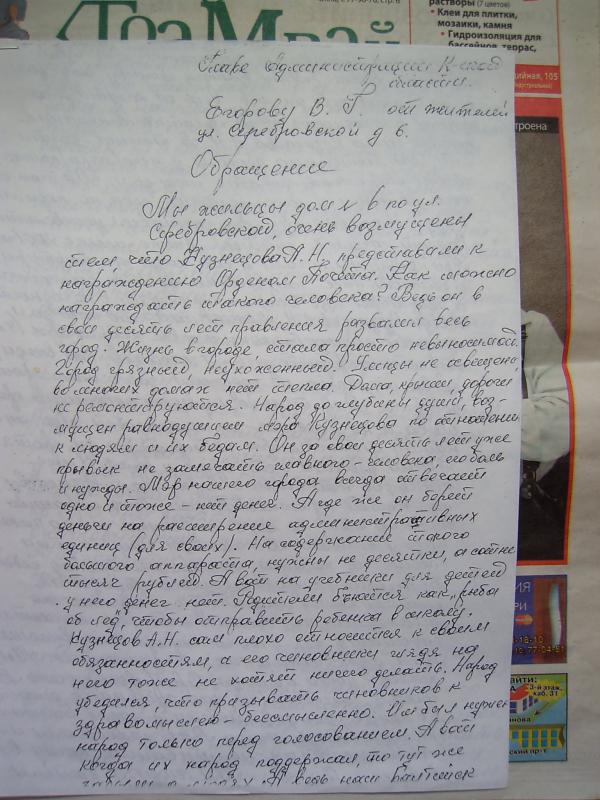 ТраМвай
стр. 6
растворы (7 цветов)
• Клеи для плитки,
мозаики, камня
• Гидроизоляция для
бассейнов, террас,
105
Главе Администрации К-ской
области.
Егорову В. Г. от жителей
ул. Серебровской д 6.
Обращение
Мы жильцы дом N 6 по ул.
Серебровской, очень возмущены
тем, что Кузнецова А.Н. представили к
награждению Орденом Почета. Как можно
награждать такого человека? Ведь он в
свои десять лет правления развалил весь
город. Жизнь в городе, стала просто невыносимой.
Город грязный, неухоженный. Улицы не освещены,
во многих домах нет тепла. Дома, крыши, дороги
не ремонтируются. Народ до глубины души, воз-
мущен равнодушием мэра Кузнецова по отношению
к людям и их бедам. Он за свои десять лет уже
привык не замечать главного - человека, его боль
и нужды. Мэр нашего города всегда отвечает
одно и тоже - нет денег. А где же он берет
деньги на расширение административных
единиц (для своих). На содержание такого
большого аппарата, нужны не десятки, а сотни
тысяч рублей. А вот на учебники для детей
у него денег нет. Родители бьются как „рыба
об лед“, чтобы отправить ребенка в школу.
Кузнецов А.Н. сам плохо относится к своим
обязанностям, а его чиновники глядя на
него тоже не хотят ничего делать. Народ
убедился, что призывать чиновников к
здравомыслию - бессмысленно. Им был нужен
народ только перед голосованием. А вот
когда их народ поддержал, то тут же
А ведь наш Балтийск
строена
3-й этаж,
каб. 31